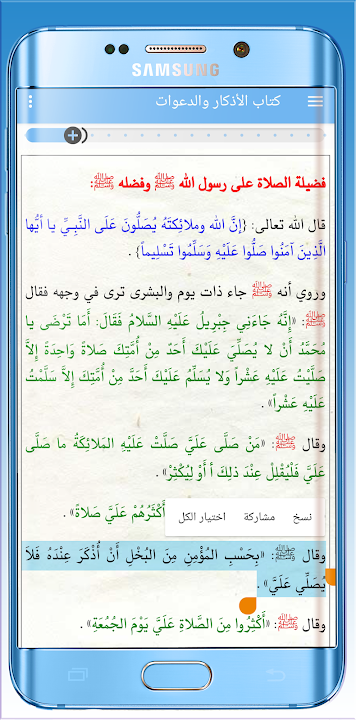 SAMSUNG
كتاب الأذكار والدعوات
فضيلة الصلاة على رسول الله ﷺ وفضله ﷺ:
قال الله تعالى: {إنَّ الله وملائِكتَهُ يُصَلُّونَ عَلَى النَّبِيِّ يا أيُّها
الَّذِينَ آمَنُوا صَلُّوا عَلَيْهِ وَسَلِّمُوا تَسْلِيماً} .
وروي أنه ﷺ جاء ذات يوم والبشرى ترى في وجهه فقال
ﷺ: «إنَّهُ جَاءَنِي جِبْرِيلُ عَلَيْهِ السَّلامُ فَقَالَ: أَمَا تَرْضَى يا
مُحَمَّدُ أَنْ لا يُصَلِّيَ عَلَيْكَ أَحَدٌ مِنْ أُمَّتِكَ صَلاةً وَاحِدَةً إلاَّ
صَلَّيْتُ عَلَيْهِ عَشْراً وَلا يُسَلِّمُ عَلَيْكَ أَحَدٌ مِنْ أُمَّتِكَ إلاَّ سَلَّمْتُ
عَلَيْهِ عَشْراً» .
وقال ﷺ: «مَنْ صَلَّى عَلَيَّ صَلَّتْ عَلَيْهِ المَلائِكَةُ ما صَلَّى
عَلَيَّ فَلْيُقْلِلْ عِنْدَ ذلِكَ أ أَوْ لِيُكْثِرْ» .
أَكْثَرُهُمْ عَلَيَّ صَلاةً» .
نسخ مشاركة اختيار الكل
وقال ﷺ: «بِحَسْبِ المُؤْمِنِ مِنَ البُخْلِ أَنْ أُذْكَرَ عِنْدَهُ فَلاَ
يُصَلِّي عَلَيَّ» .
وقال ﷺ: «أَكْثِرُوا مِنَ الصَّلاةِ عَلَيَّ يَوْمَ الجُمُعَةِ» .